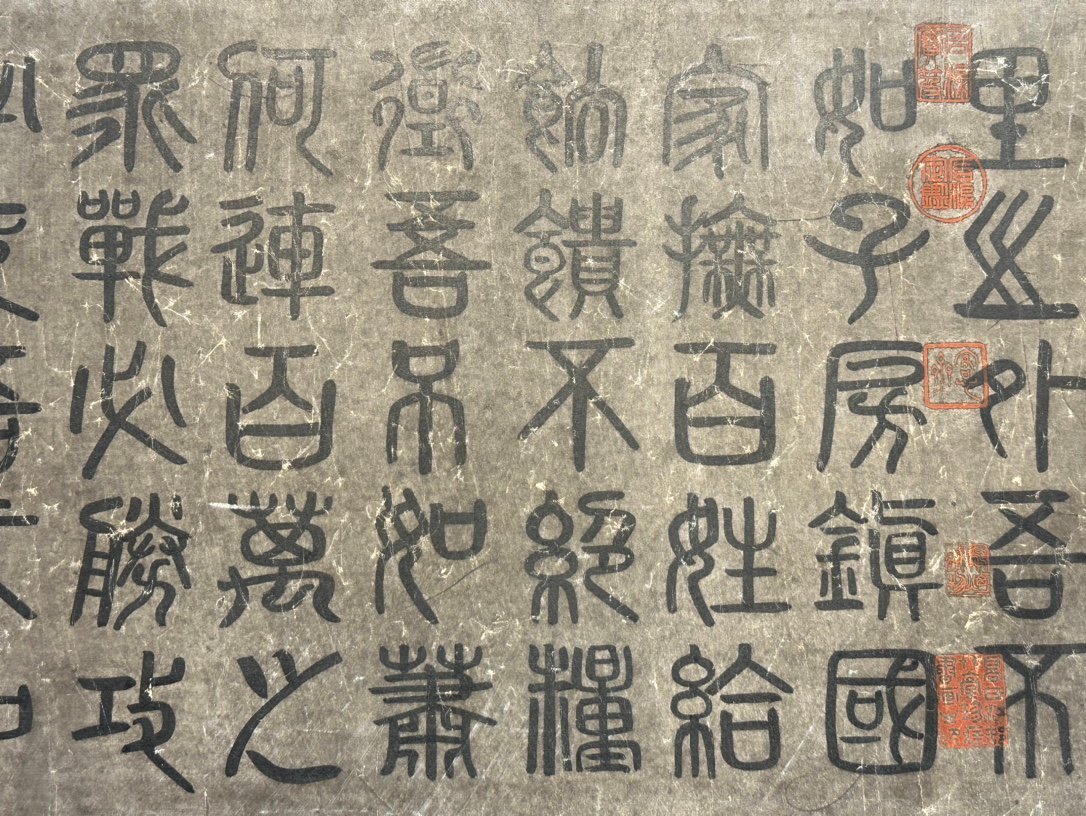 里之外吾不
如子房鎮國
家撫百姓給
餉饋不絕糧
道吾不如蕭
何連百萬之
眾戰必勝攻